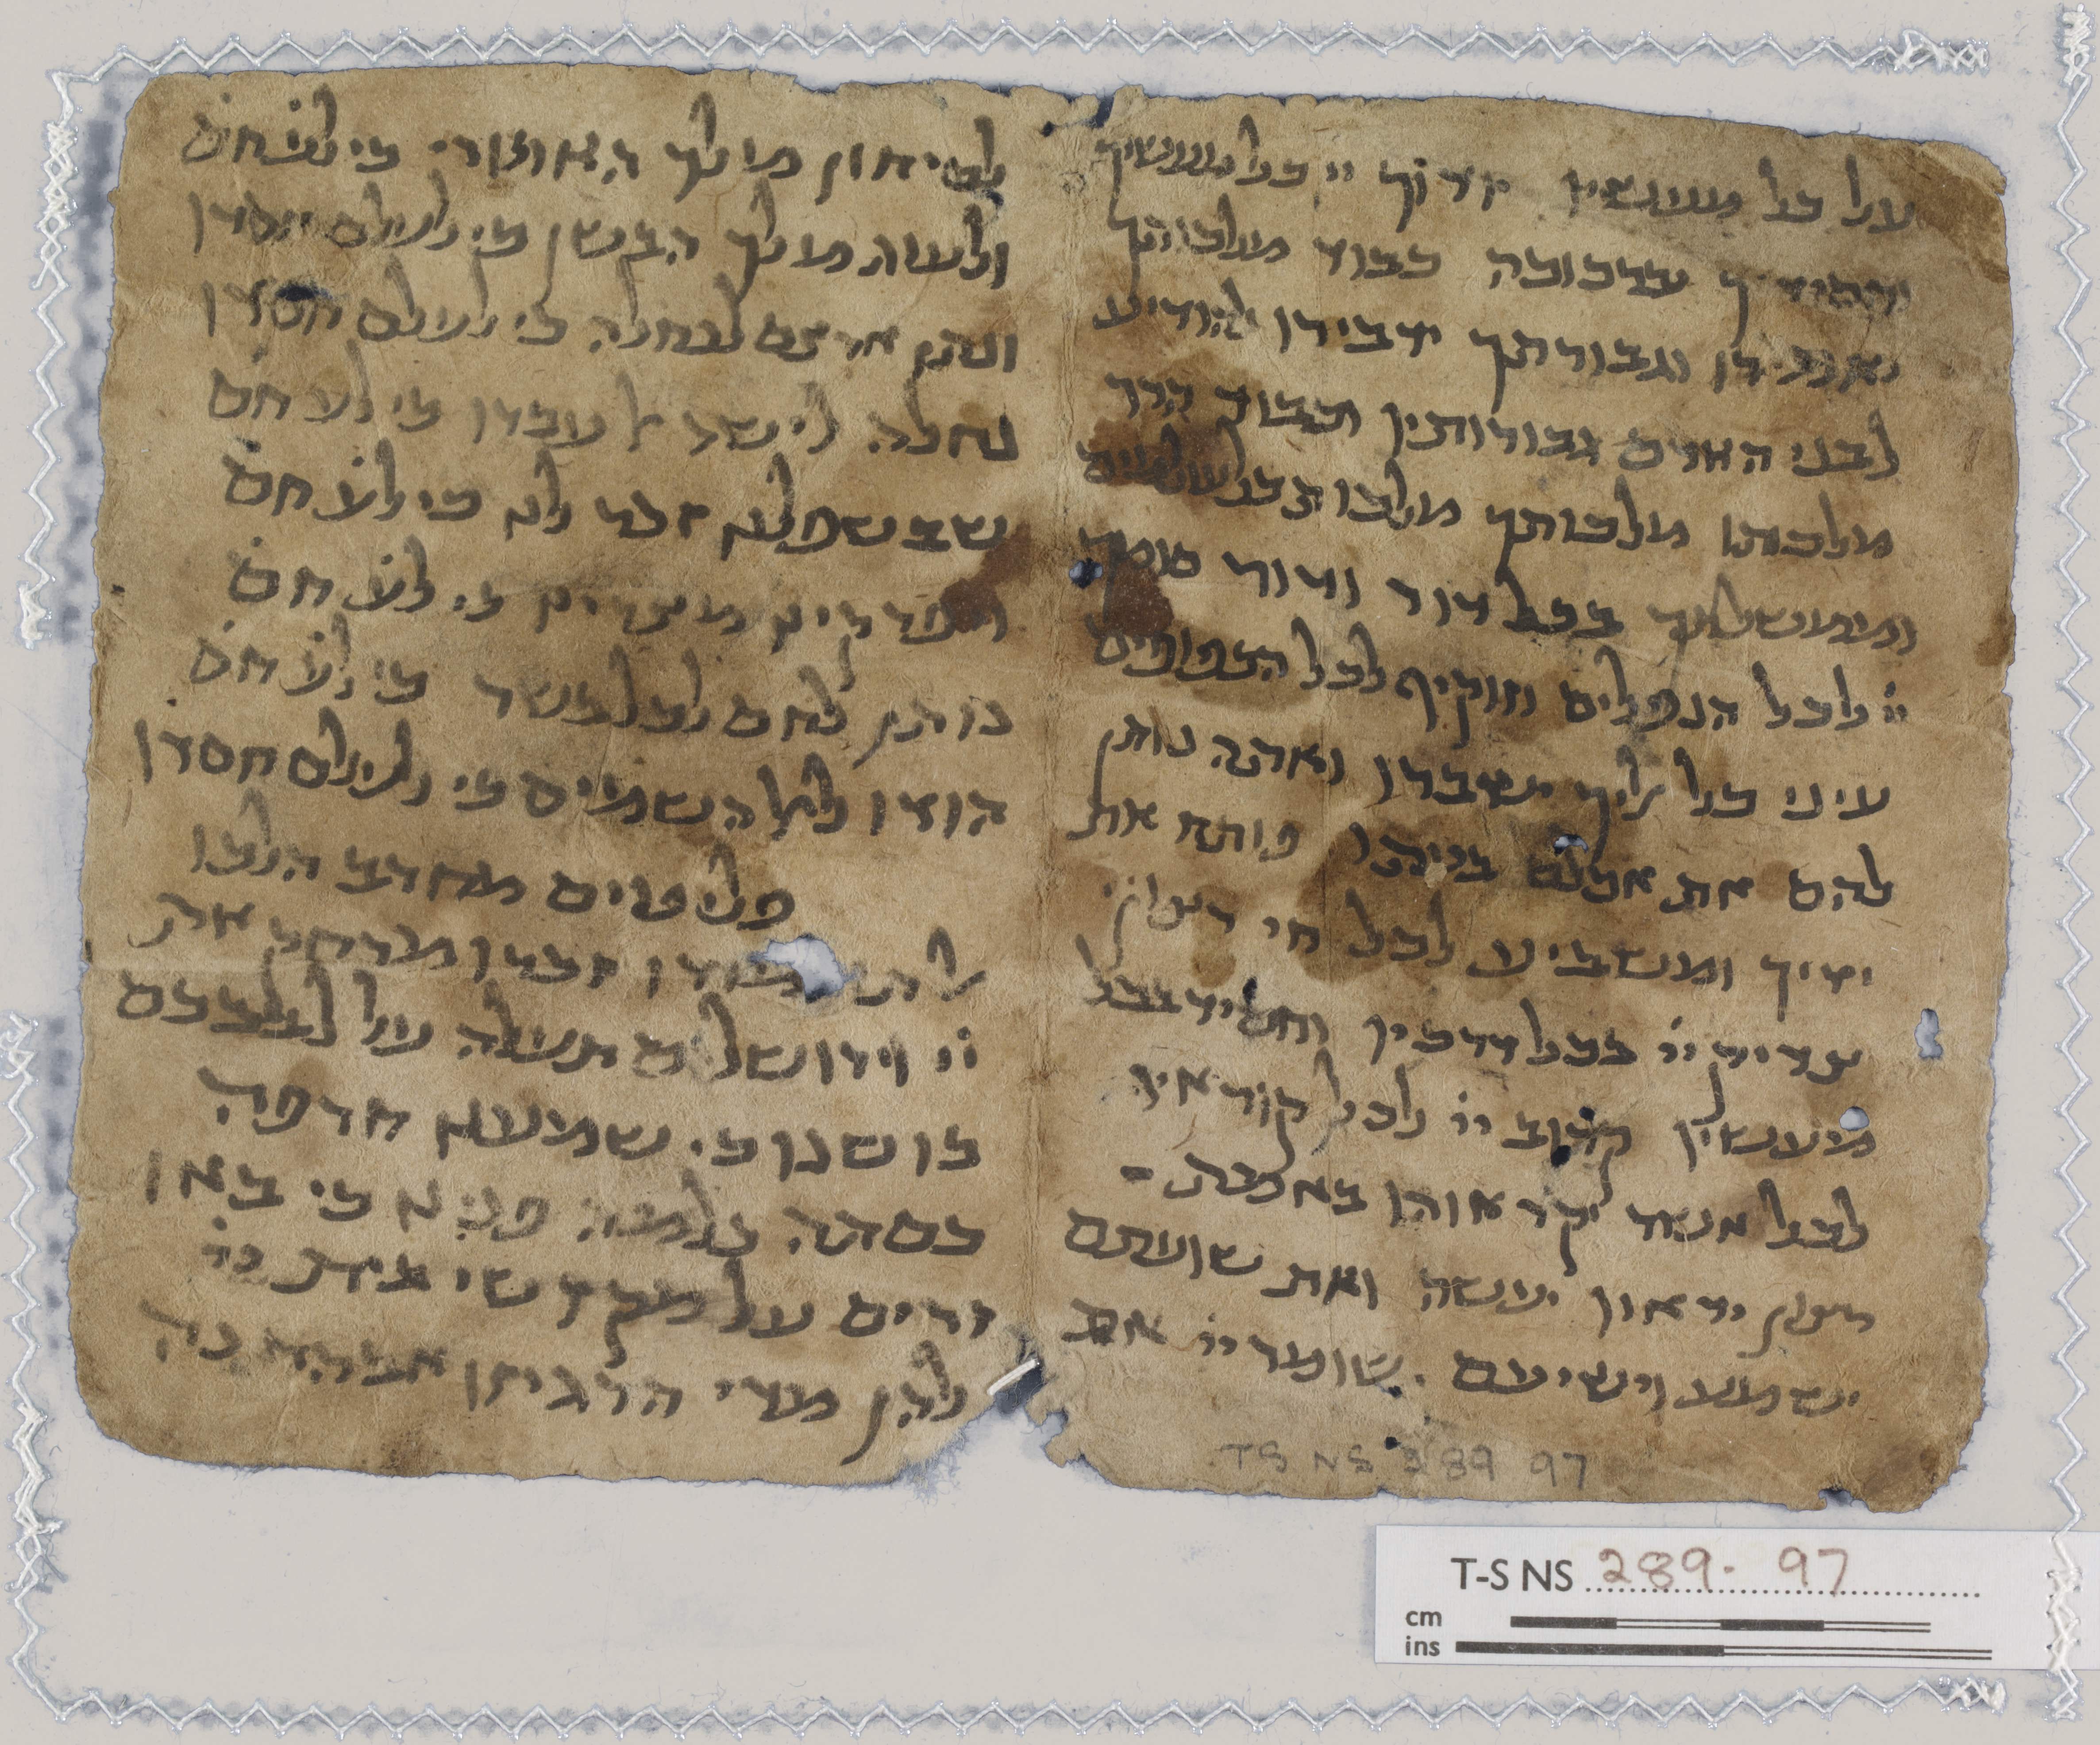 על כל מעשיו יודוך יי כל מעשיך
וחסידיך יברכוכה כבוד מלכותך
יאמרו וגבורתך ידבירו להודיע
לבני האדם גבורותיו וכבוד הדר
מלכותו מלכותך מלכות כל עולמים
וממשלתך בכל דור ודור סומך
יי לכל הנפלים וזוקיף לכל הכפופים
עיני כל אליך ישברו ואתה נותן
להם את אכלם בעיתו פותח את
ידיך ומשביע לכל חי רצון
צדיק יי בכל דרכיו וחסיד בכל
מעשיו קרוב יי לכל קוראיו
לכל אשר יקראוהו באמת
רצון יראיו יעשה ואת שועתם
ישמע וישיעם שומר יי את
לסיחון מלך האמורי כי לע חס
ולעוג מלך הבשן כי לעולם חסדו
ונתן ארצם לנחלה כי לעולם חסדו
נחלה לישראל עבדו כי לע חס
שבשפלנו זכר לנו כי לע חס
ויפרקינו מצרינו כי לע חס
נותן לחם לכל בשר כי לע חס
הודו לאל השמים כי לעולם חסדו
פליטים מחרב הלכו
אל תעמודו זכרו מרחק את
יי וירושלים תעלה על לבבכם
בושנו כי שמענו חרפה
כסתה כלמה פנינו כי באו
זרים על מקדשי בית יי
להן מצי הרגיזו אבהתנה
T-S NS 289 97
T-S NS 289. 97
cm
ins